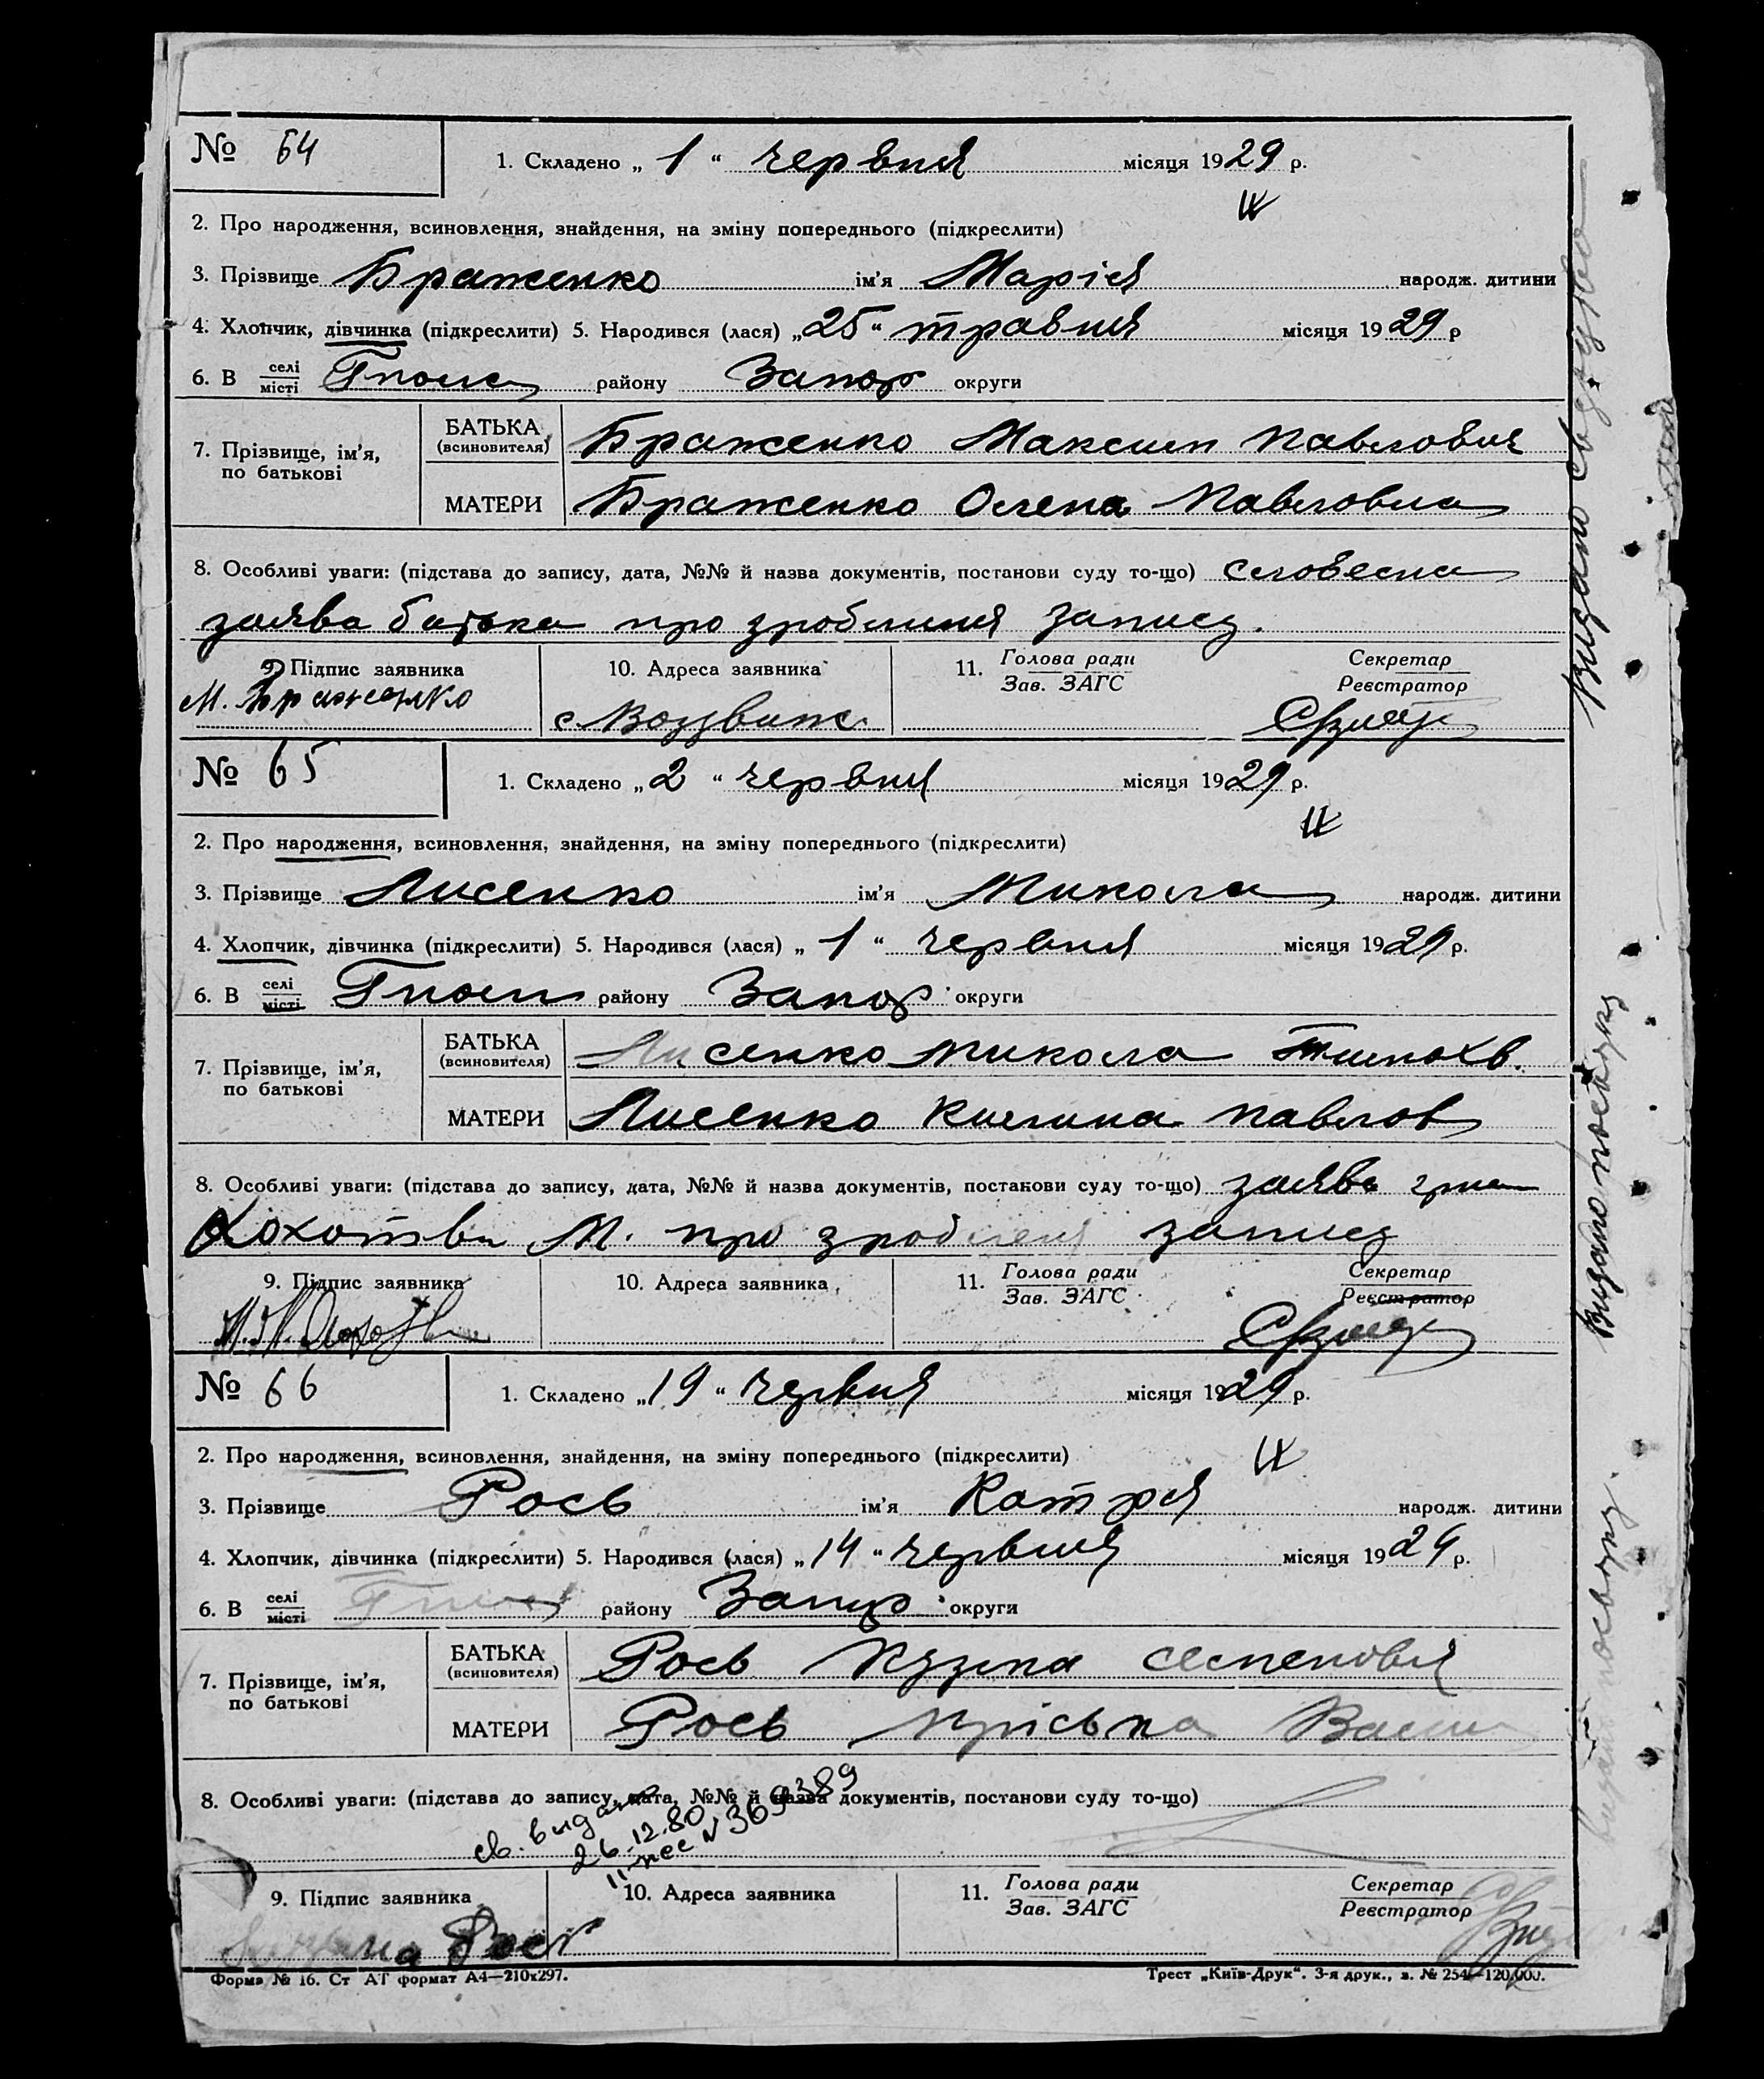 № 64
1. Складено „ 1 “ червня місяця 1929 р.
2. Про народження, всиновлення, знайдення, на зміну попереднього (підкреслити)
3. Прізвище Браженко ім'я Марія народж. дитини
4. Хлопчик, дівчинка (підкреслити) 5. Народився (лася) „ 25 “ травня місяця 1929 р
6. В селі місті району Запор округи
7. Прізвище, ім'я, по батькові
БАТЬКА (всиновителя) Браженко Максим Павлович
МАТЕРИ Браженко Олена Павловна
8. Особливі уваги: (підстава до запису, дата, №№ й назва документів, постанови суду то-що) словесна
заява батька про зроблення запису.
9. Підпис заявника 10. Адреса заявника 11. Голова ради Зав. ЗАГС Секретар Реєстратор
М. Браженко с. Воздвиж.
№ 65
1. Складено „ 2 “ червня місяця 1929 р.
2. Про народження, всиновлення, знайдення, на зміну попереднього (підкреслити)
3. Прізвище Лисенко ім'я Микола народж. дитини
4. Хлопчик, дівчинка (підкреслити) 5. Народився (лася) „ 1 “ червня місяця 1929 р.
6. В селі місті району Запор округи
7. Прізвище, ім'я, по батькові
БАТЬКА (всиновителя) Лисенко Микола
МАТЕРИ Лисенко Килина Павлов
8. Особливі уваги: (підстава до запису, дата, №№ й назва документів, постанови суду то-що) заява
М. про зроблення запису
9. Підпис заявника 10. Адреса заявника 11. Голова ради Зав. ЗАГС Секретар Реєстратор
№ 66
1. Складено „ 19 “ червня місяця 1929 р.
2. Про народження, всиновлення, знайдення, на зміну попереднього (підкреслити)
3. Прізвище Рось ім'я Катря народж. дитини
4. Хлопчик, дівчинка (підкреслити) 5. Народився (лася) „ 14 “ червня місяця 1929 р.
6. В селі місті району Запор округи
7. Прізвище, ім'я, по батькові
БАТЬКА (всиновителя) Рось Кузьма Семенович
МАТЕРИ Рось
8. Особливі уваги: (підстава до запису, дата, №№ й назва документів, постанови суду то-що)
св. видано
26.12.80
№ 369389
9. Підпис заявника 10. Адреса заявника 11. Голова ради Зав. ЗАГС Секретар Реєстратор
Рось
Форма № 16. Ст АТ формат А4—210х297.
Трест „Київ-Друк“. 3-я друк., з. № 254—120.000.
Видано
Видано посвідку
Видано посвідку.